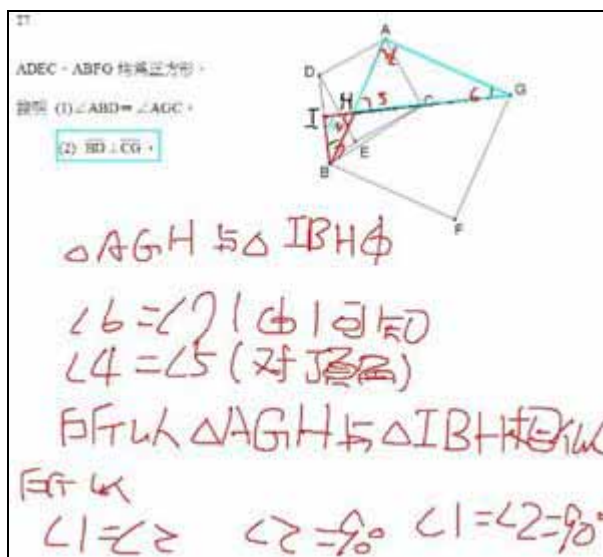 27
ADEC、ABFG 均為正方形。
證明 (1)∠ABD=∠AGC。
(2) BD⊥CG。
A
D
H
5
6
G
I
E
B
F
△AGH与△IBH中
∠6=∠7(由1可知)
∠4=∠5(对頂角)
所以△AGH与△IBH相似
所以
∠1=∠2 ∠2=90° ∠1=∠2=90°